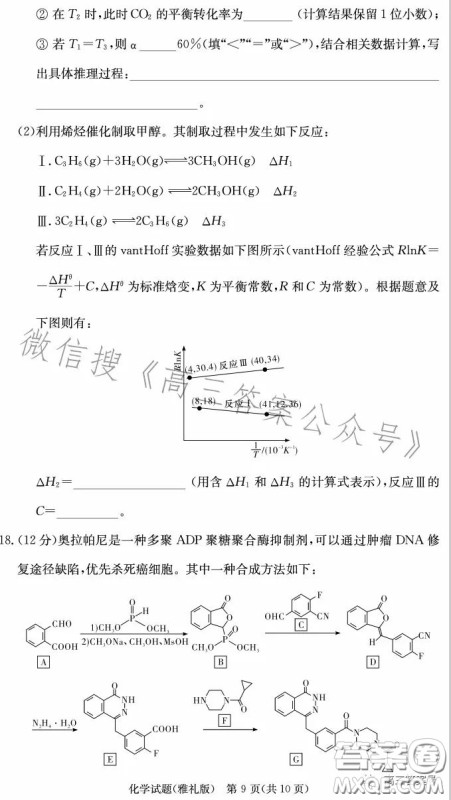 ② 在 T₂ 时,此时 CO₂ 的平衡转化率为______(计算结果保留 1 位小数);
③ 若 T₁=T₃,则 α______60%(填“<”“=”或“>”),结合相关数据计算,写
出具体推理过程:______
______。
(2)利用烯烃催化制取甲醇。其制取过程中发生如下反应:
Ⅰ. C₃H₆(g)+3H₂O(g)⇌3CH₃OH(g) ΔH₁
Ⅱ. C₂H₄(g)+2H₂O(g)⇌2CH₃OH(g) ΔH₂
Ⅲ. 3C₂H₄(g)⇌2C₃H₆(g) ΔH₃
若反应Ⅰ、Ⅲ的 vantHoff 实验数据如下图所示(vantHoff 经验公式 RlnK=
-ΔH^θ/T+C,ΔH^θ 为标准焓变,K 为平衡常数,R 和 C 为常数)。根据题意及
下图则有:
RlnK
(4,30.4) 反应Ⅲ (40,34)
(8,18) 反应Ⅰ
1/T/(10⁻³K⁻¹)
微信搜《高三答案公众号》
ΔH₂=______(用含 ΔH₁ 和 ΔH₃ 的计算式表示),反应Ⅲ的
C=______。
18.(12 分)奥拉帕尼是一种多聚 ADP 聚糖聚合酶抑制剂,可以通过肿瘤 DNA 修
复途径缺陷,优先杀死癌细胞。其中一种合成方法如下:
CHO
COOH
A
O
H
P
CH₃O
OCH₃
1)
2)CH₃ONa、CH₃OH、MsOH
O
O
P
O
CH₃O
OCH₃
B
F
OHC
CN
C
O
O
H
CN
F
D
N₂H₄·H₂O
O
NH
N
COOH
F
E
HN
N
O
F
O
NH
N
O
N
G
化学试题(雅礼版) 第 9 页(共 10 页)
答案圈
MXQE.COM